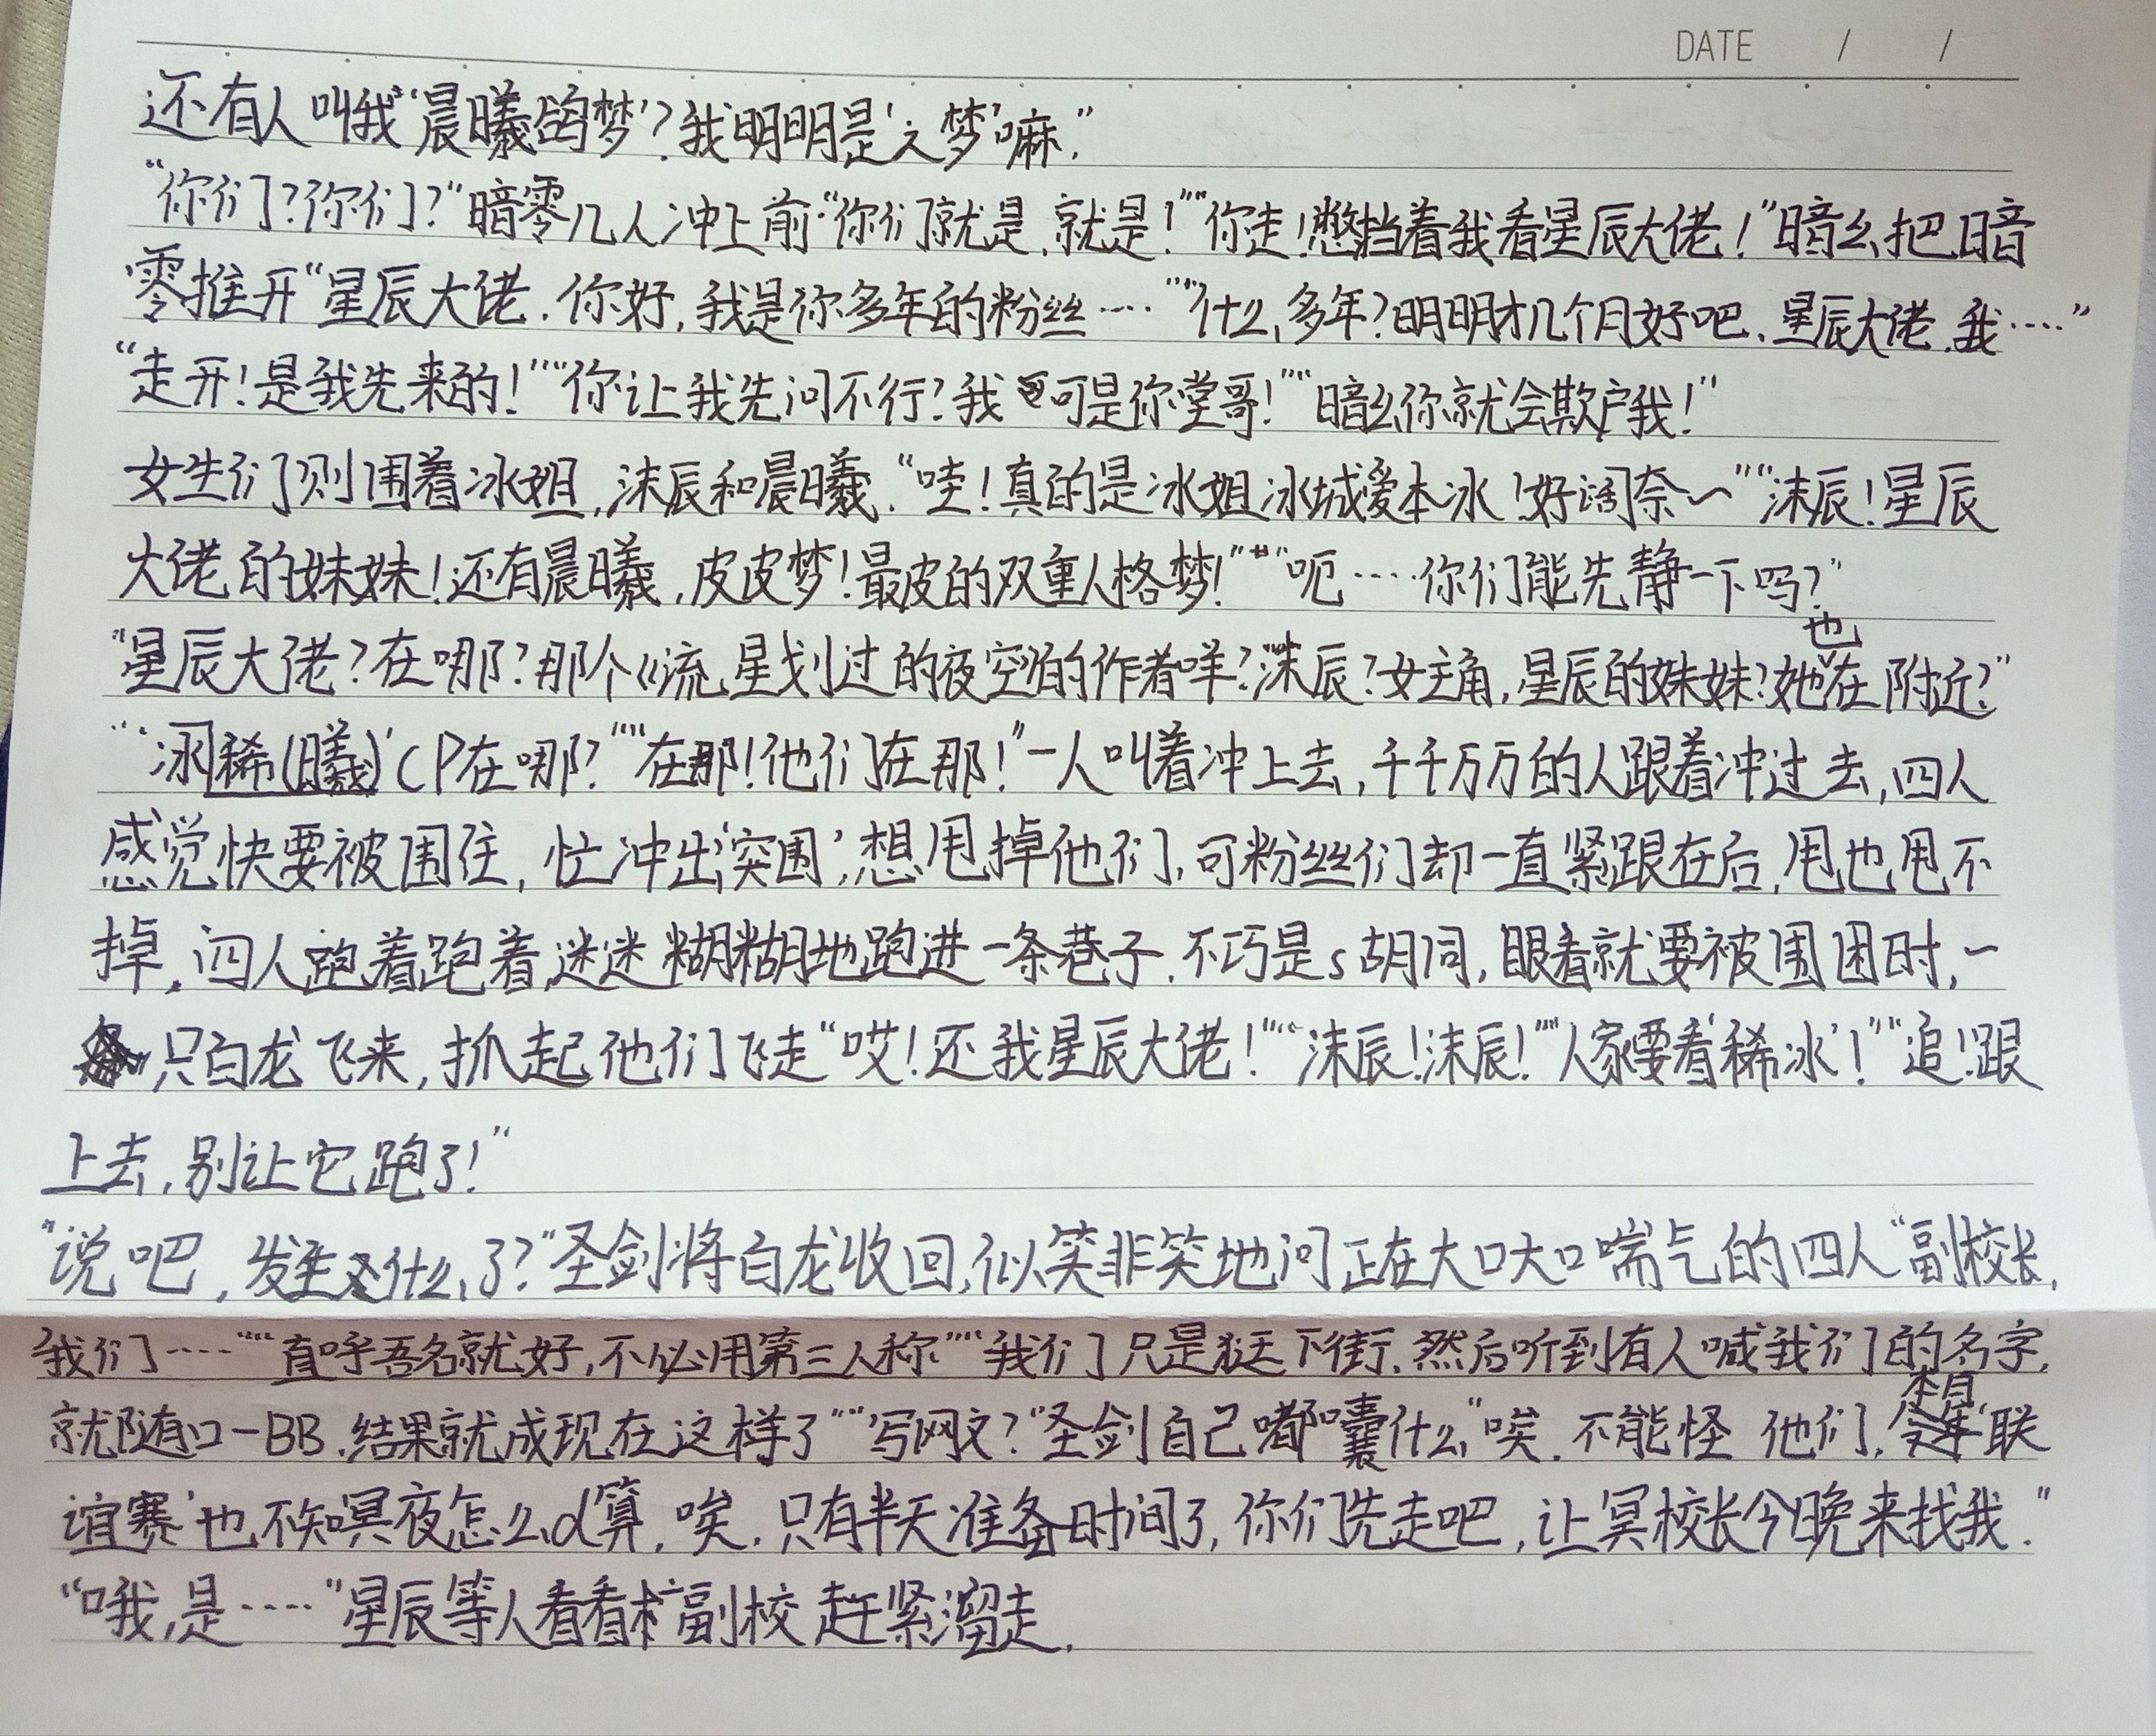 DATE / /
还有人叫我‘晨曦的梦’？我明明是‘之梦’嘛.”
“你们？你们？”暗零几人冲上前“你们就是,就是！”“你走！憋挡着我看星辰大佬！”暗幺把暗
零推开“星辰大佬.你好,我是你多年的粉丝····”“什么,多年？明明才几个月好吧.星辰大佬.我····”
“走开！是我先来的！”“你让我先问不行？我可是你堂哥！”“暗幺你就会欺户我！”
女生们则围着冰姐,沫辰和晨曦.“哇！真的是冰姐冰城爱本冰！好阔奈～”“沫辰！星辰
大佬的妹妹！还有晨曦,皮皮梦！最皮的双重人格梦！”“呃····你们能先静一下吗？”
“星辰大佬？在哪？那个《流星划过的夜空》的作者咩？沫辰？女主角,星辰的妹妹？她也在附近？”
“‘冰稀(曦)’CP在哪？”“在那！他们在那！”一人叫着冲上去,千千万万的人跟着冲过去,四人
感觉快要被围住,忙冲出‘突围’,想甩掉他们,可粉丝们却一直紧跟在后,甩也甩不
掉.四人跑着跑着,迷迷糊糊地跑进一条巷子.不巧是s胡同,眼看就要被围困时,一
只白龙飞来,抓起他们飞走“哎！还我星辰大佬！”“沫辰！沫辰！”“人家要看‘稀冰’！”“追！跟
上去,别让它跑了！”
“说吧,发生什么了？”圣剑将白龙收回,似笑非笑地问正在大口大口喘气的四人“副校长,
我们····”“直呼吾名就好,不必用第三人称”“我们只是逛下街.然后听到有人喊我们的名字,
就随口一BB.结果就成现在这样了”“写网文？”圣剑自己嘟囔什么,“唉.不能怪他们,想今年‘联
谊赛’也不知冥夜怎么d算.唉.只有半天准备时间了,你们先走吧,让冥校长今晚来找我.”
“哦,是····”星辰等人看看副校赶紧溜走.